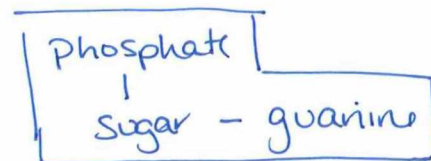 phosphate
|
sugar - guanine